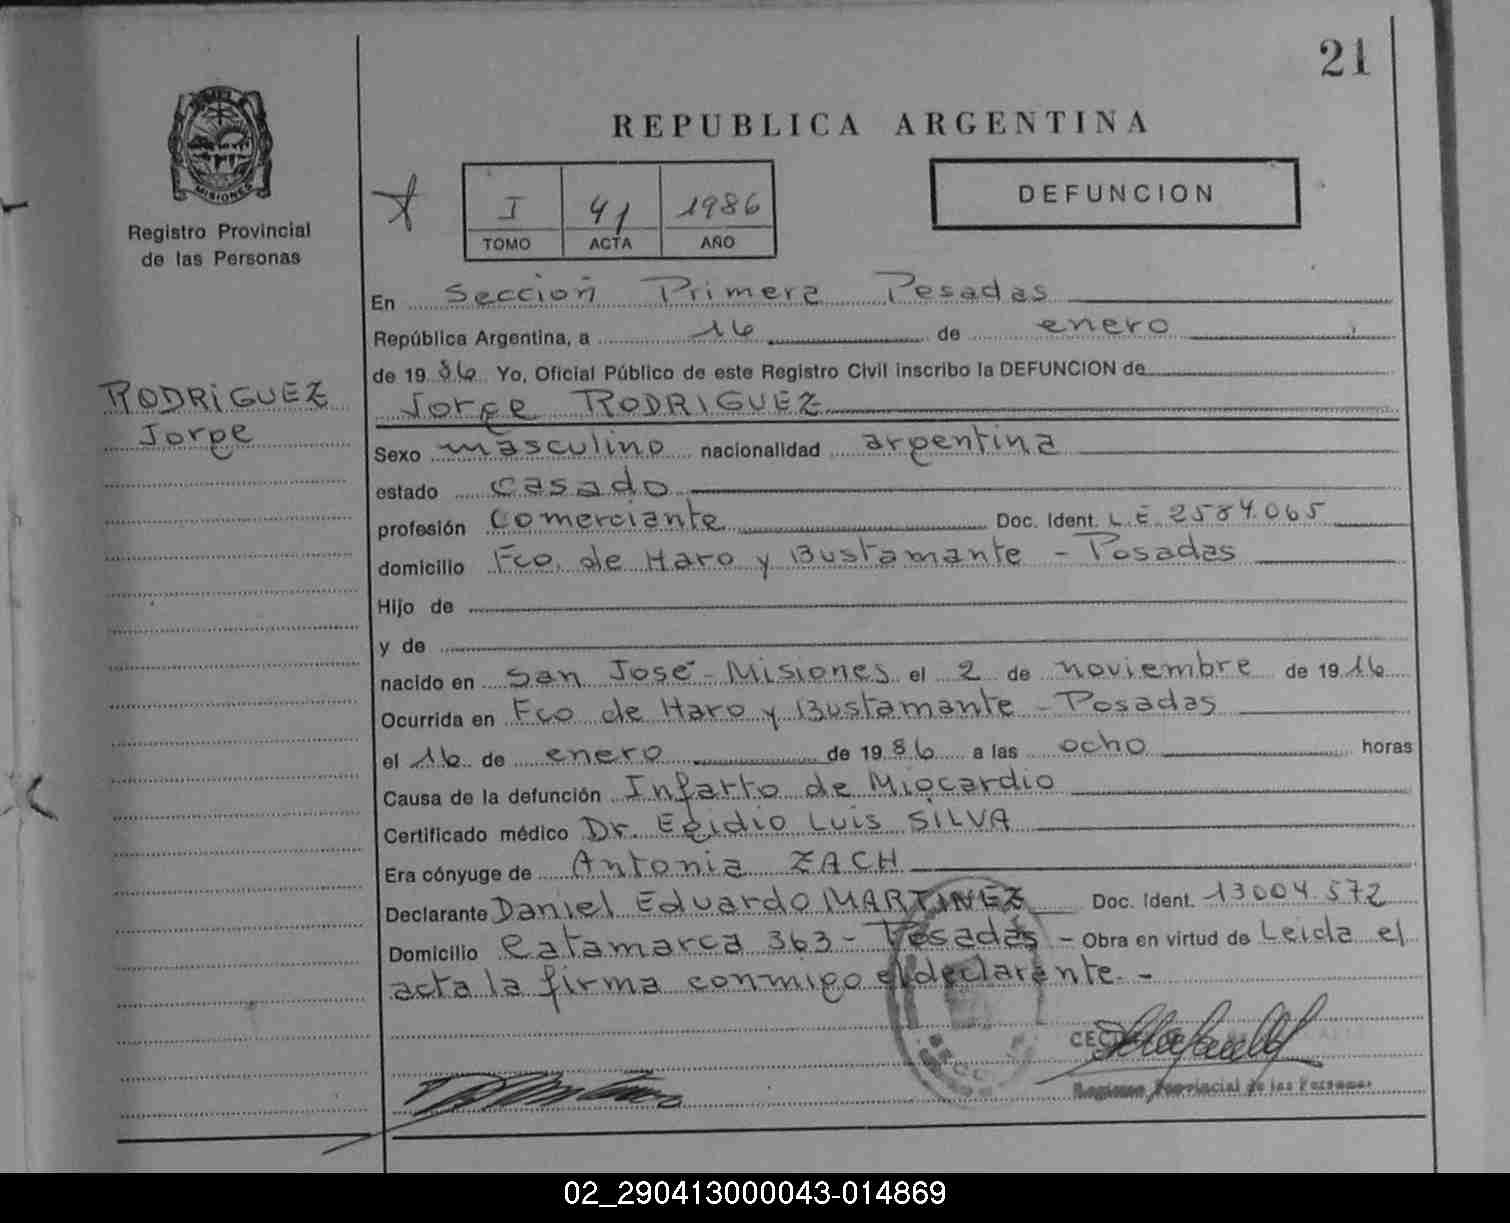 21
REPUBLICA ARGENTINA
MISIONES
Registro Provincial
de las Personas
I 41 1986
TOMO ACTA AÑO
DEFUNCION
En Sección Primera Posadas
República Argentina, a 16 de enero
de 1986 Yo, Oficial Público de este Registro Civil inscribo la DEFUNCION de
RODRIGUEZ
Jorge
Jorge RODRIGUEZ
Sexo masculino nacionalidad argentina
estado casado
profesión Comerciante Doc. Ident. L.E. 2584.065
domicilio Fco. de Haro y Bustamante - Posadas
Hijo de
y de
nacido en San José - Misiones el 2 de noviembre de 1916
Ocurrida en Fco de Haro y Bustamante - Posadas
el 16 de enero de 1986 a las ocho horas
Causa de la defunción Infarto de Miocardio
Certificado médico Dr. Egidio Luis SILVA
Era cónyuge de Antonia ZACH
Declarante Daniel Eduardo MARTINEZ Doc. Ident. 13004.572
Domicilio Catamarca 363 - Posadas - Obra en virtud de Leida el
acta la firma conmigo el declarante. -
Provincial de las Personas
02_290413000043-014869